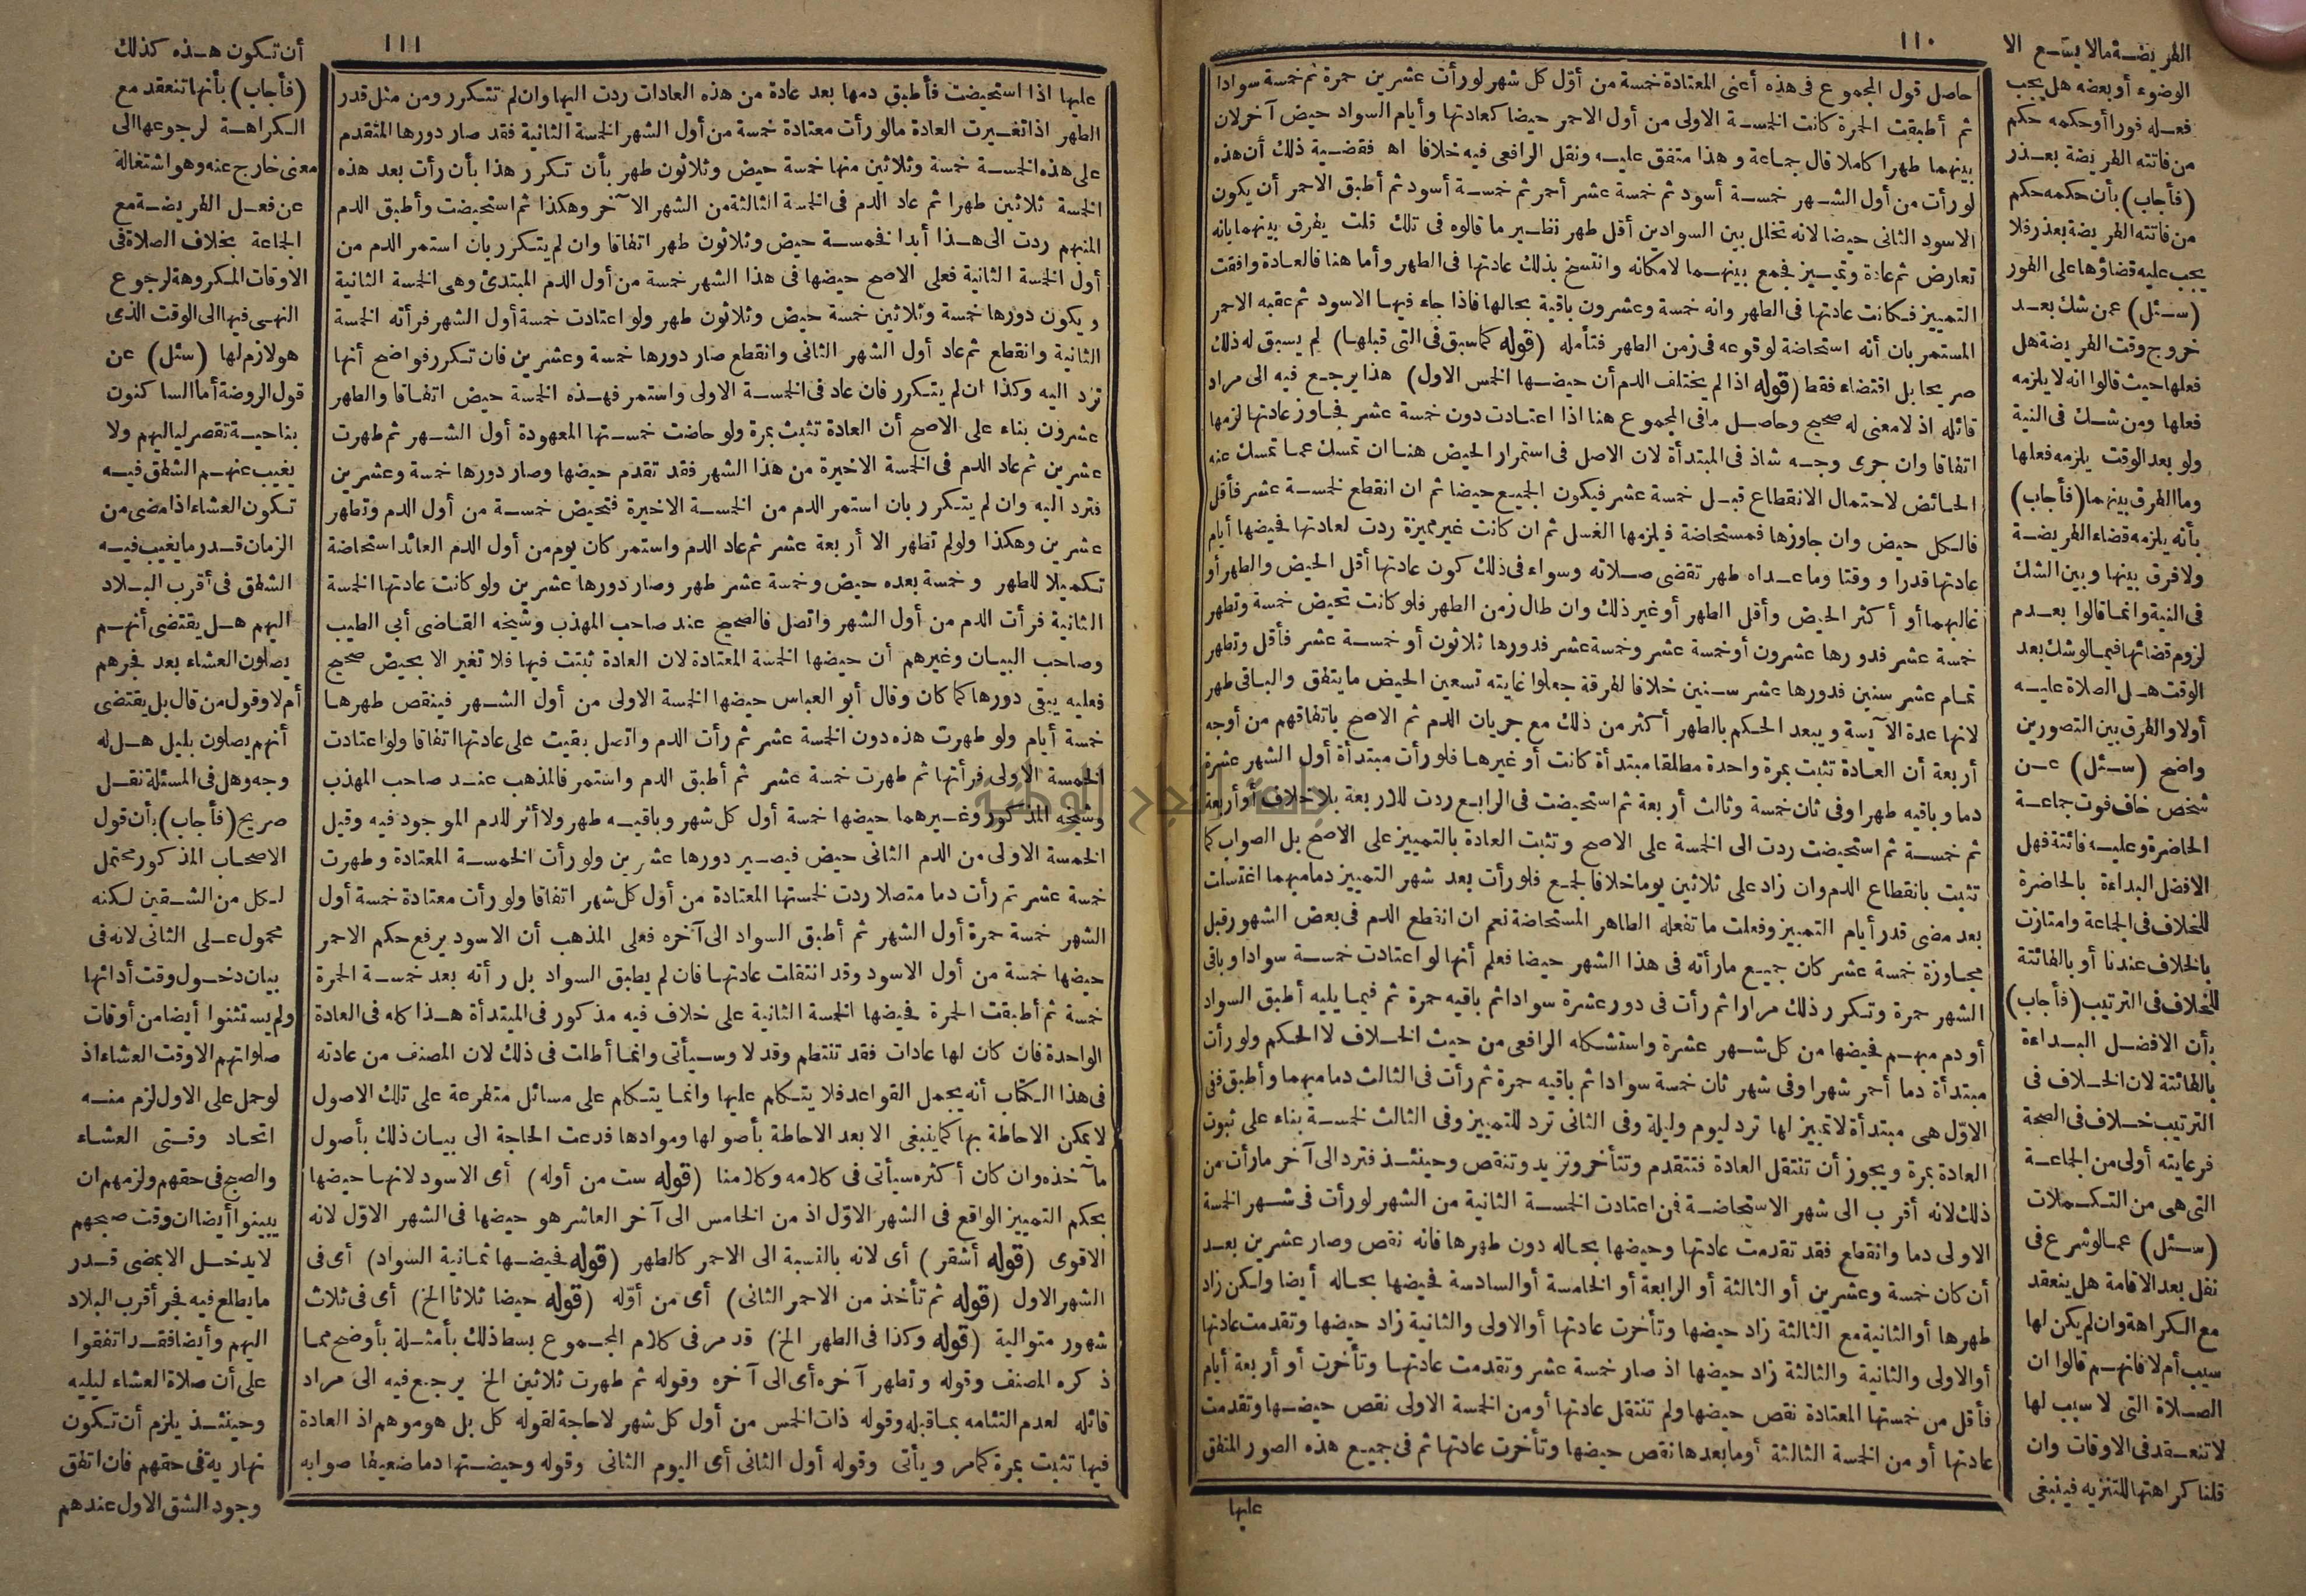 ١١٠
حاصل قول المجموع فى هذه أعنى المعتادة خمسة من أوّل كل شهر لو رأت عشرين حمرة ثم خمسة سوادا
ثم أطبقت الحمرة كانت الخمسة الاولى من أول الاحمر حيضا كعادتها وأيام السواد حيض آخر لان
بينهما طهرا كاملا قال جماعة وهذا متفق عليه ونقل الرافعى فيه خلافا اه فقضية ذلك أن هذه
لو رأت من أول الشهر خمسة أسود ثم خمسة عشر أحمر ثم خمسة أسود ثم أطبق الاحمر أن يكون
الاسود الثانى حيضا لانه تخلل بين السوادين أقل طهر نظير ما قالوه فى تلك قلت يفرق بينهما بانه
تعارض ثم عادة وتمييز فجمع بينهما لامكانه وانتسخ بذلك عادتها فى الطهر وأما هنا فالعادة وافقت
التمييز فكانت عادتها فى الطهر وانه خمسة وعشرون باقية بحالها فاذا جاء فيها الاسود ثم عقبه الاحمر
المستمر بان أنه استحاضة لوقوعه فى زمن الطهر فتأمله (قوله كما سبق فى التى قبلها) لم يسبق له ذلك
صريحا بل اقتضاء فقط (قوله اذا لم يختلف الدم أن حيضها الخمس الاول) هذا يرجع فيه الى مراد
قائله اذ لا معنى له صحيح وحاصل ما فى المجموع هنا اذا اعتادت دون خمسة عشر فجاوز عادتها لزمها
اتفاقا وان جرى وجه شاذ فى المبتدأة لان الاصل فى استمرار الحيض هنا ان تمسك عما تمسك عنه
الحائض لاحتمال الانقطاع قبل خمسة عشر فيكون الجميع حيضا ثم ان انقطع لخمسة عشر فأقل
فالكل حيض وان جاوزها فمستحاضة فيلزمها الغسل ثم ان كانت غير مميزة ردت لعادتها فحيضها أيام
عادتها قدرا ووقتا وما عداه طهر تقضى صلاته وسواء فى ذلك كون عادتها أقل الحيض والطهر أو
غالبهما أو أكثر الحيض وأقل الطهر أو غير ذلك وان طال زمن الطهر فلو كانت تحيض خمسة وتطهر
خمسة عشر فدورها عشرون أو خمسة عشر وخمسة عشر فدورها ثلاثون أو خمسة عشر فأقل وتطهر
تمام عشر سنين فدورها عشر سنين خلافا لفرقة جعلوا غايته تسعين الحيض ما يتفق والباقى طهر
لانها عدة الآيسة ويبعد الحكم بالطهر أكثر من ذلك مع جريان الدم ثم الاصح باتفاقهم من أوجه
أربعة أن العادة تثبت بمرة واحدة مطلقا مبتدأة كانت أو غيرها فلو رأت مبتدأة أول الشهر عشرة
دما وباقيه طهرا وفى ثان خمسة وثالث أربعة ثم استحيضت فى الرابع ردت للاربعة بلا خلاف أو أربعة
ثم خمسة ثم استحيضت ردت الى الخمسة على الاصح وتثبت العادة بالتمييز على الاصح بل الصواب كما
تثبت بانقطاع الدم وان زاد على ثلاثين يوما خلافا لجمع فلو رأت بعد شهر التمييز دما مبهما اغتسلت
بعد مضى قدر أيام التمييز وفعلت ما تفعله الطاهر المستحاضة نعم ان انقطع الدم فى بعض الشهور قبل
مجاوزة خمسة عشر كان جميع ما رأته فى هذا الشهر حيضا فعلم أنها لو اعتادت خمسة سوادا وباقى
الشهر حمرة وتكرر ذلك مرارا ثم رأت فى دور عشرة سوادا ثم باقيه حمرة ثم فيما يليه أطبق السواد
أو دم مبهم فحيضها من كل شهر عشرة واستشكله الرافعى من حيث الخلاف لا الحكم ولو رأت
مبتدأة دما أحمر شهرا وفى شهر ثان خمسة سوادا ثم باقيه حمرة ثم رأت فى الثالث دما مبهما وأطبق ففى
الاوّل هى مبتدأة لا تمييز لها ترد ليوم وليلة وفى الثانى ترد للتمييز وفى الثالث لخمسة بناء على ثبوت
العادة بمرة ويجوز أن تنتقل العادة فتتقدم وتتأخر وتزيد وتنقص وحينئذ فترد الى آخر ما رأت من
ذلك لانه أقرب الى شهر الاستحاضة فمن اعتادت الخمسة الثانية من الشهر لو رأت فى شهر الخمسة
الاولى دما وانقطع فقد تقدمت عادتها وحيضها بحاله دون طهرها فانه نقص وصار عشرين بعد
أن كان خمسة وعشرين أو الثالثة أو الرابعة أو الخامسة أو السادسة فحيضها بحاله أيضا ولكن زاد
طهرها أو الثانية مع الثالثة زاد حيضها وتأخرت عادتها أو الاولى والثانية زاد حيضها وتقدمت عادتها
أو الاولى والثانية والثالثة زاد حيضها اذ صار خمسة عشر وتقدمت عادتها وتأخرت أو أربعة أيام
فأقل من خمستها المعتادة نقص حيضها ولم تنتقل عادتها أو من الخمسة الاولى نقص حيضها وتقدمت
عادتها أو من الخمسة الثالثة أو ما بعدها نقص حيضها وتأخرت عادتها ثم فى جميع هذه الصور المتفق
عليها
الفريضة مالا يسع الا
الوضوء أو بعضه هل يجب
فعله فورا أو حكمه حكم
من فاتته الفريضة بعذر
(فأجاب) بأن حكمه حكم
من فاتته الفريضة بعذر فلا
يجب عليه قضاؤها على الفور
(سئل) عمن شك بعد
خروج وقت الفريضة هل
فعلها حيث قالوا انه لا يلزمه
فعلها ومن شك فى النية
ولو بعد الوقت يلزمه فعلها
وما الفرق بينهما (فأجاب)
بأنه يلزمه قضاء الفريضة
ولا فرق بينها وبين الشك
فى النية وانما قالوا بعدم
لزوم قضائها فيما لو شك بعد
الوقت هل الصلاة عليه
أولا والفرق بين التصورين
واضح (سئل) عن
شخص خاف فوت جماعة
الحاضرة وعليه فائتة فهل
الافضل البداءة بالحاضرة
للخلاف فى الجماعة وامتازت
بالخلاف عندنا أو بالفائتة
للخلاف فى الترتيب (فأجاب)
بأن الافضل البداءة
بالفائتة لان الخلاف فى
الترتيب خلاف فى الصحة
فرعايته أولى من الجماعة
التى هى من التكملات
(سئل) عما لو شرع فى
نفل بعد الاقامة هل ينعقد
مع الكراهة وان لم يكن لها
سبب أم لا فانهم قالوا ان
الصلاة التى لا سبب لها
لا تنعقد فى الاوقات وان
قلنا كراهتها للتنزيه فينبغى
١١١
عليها اذا استحيضت فأطبق دمها بعد عادة من هذه العادات ردت اليها وان لم تتكرر ومن مثل قدر
الطهر اذا تغيرت العادة ما لو رأت معتادة خمسة من أول الشهر الخمسة الثانية فقد صار دورها المتقدم
على هذه الخمسة خمسة وثلاثين منها خمسة حيض وثلاثون طهر بأن تكرر هذا بأن رأت بعد هذه
الخمسة ثلاثين طهرا ثم عاد الدم فى الخمسة الثالثة من الشهر الآخر وهكذا ثم استحيضت وأطبق الدم
المبهم ردت الى هذا أبدا فخمسة حيض وثلاثون طهر اتفاقا وان لم يتكرر بان استمر الدم من
أول الخمسة الثانية فعلى الاصح حيضها فى هذا الشهر خمسة من أول الدم المبتدئ وهى الخمسة الثانية
ويكون دورها خمسة وثلاثين خمسة حيض وثلاثون طهر ولو اعتادت خمسة أول الشهر فرأته الخمسة
الثانية وانقطع ثم عاد أول الشهر الثانى وانقطع صار دورها خمسة وعشرين فان تكرر فواضح أنها
ترد اليه وكذا ان لم يتكرر فان عاد فى الخمسة الاولى واستمر فهذه الخمسة حيض اتفاقا والطهر
عشرون بناء على الاصح أن العادة تثبت بمرة ولو حاضت خمستها المعهودة أول الشهر ثم طهرت
عشرين ثم عاد الدم فى الخمسة الاخيرة من هذا الشهر فقد تقدم حيضها وصار دورها خمسة وعشرين
فترد اليه وان لم يتكرر بان استمر الدم من الخمسة الاخيرة فتحيض خمسة من أول الدم وتطهر
عشرين وهكذا ولو لم تطهر الا أربعة عشر ثم عاد الدم واستمر كان يوم من أول الدم العائد استحاضة
تكميلا للطهر وخمسة بعده حيض وخمسة عشر طهر وصار دورها عشرين ولو كانت عادتها الخمسة
الثانية فرأت الدم من أول الشهر واتصل فالصحيح عند صاحب المهذب وشيخه القاضى أبى الطيب
وصاحب البيان وغيرهم أن حيضها الخمسة المعتادة لان العادة ثبتت فيها فلا تغير الا بحيض صحيح
فعليه يبقى دورها كما كان وقال أبو العباس حيضها الخمسة الاولى من أول الشهر فينقص طهرها
خمسة أيام ولو طهرت هذه دون الخمسة عشر ثم رأت الدم واتصل بقيت على عادتها اتفاقا ولو اعتادت
الخمسة الاولى فرأتها ثم طهرت خمسة عشر ثم أطبق الدم واستمر فالمذهب عند صاحب المهذب
وشيخه المذكور وغيرهما حيضها خمسة أول كل شهر وباقيه طهر ولا أثر للدم الموجود فيه وقيل
الخمسة الاولى من الدم الثانى حيض فيصير دورها عشرين ولو رأت الخمسة المعتادة وطهرت
خمسة عشر ثم رأت دما متصلا ردت لخمستها المعتادة من أوّل كل شهر اتفاقا ولو رأت معتادة خمسة أول
الشهر خمسة حمرة أول الشهر ثم أطبق السواد الى آخره فعلى المذهب أن الاسود يرفع حكم الاحمر
حيضها خمسة من أول الاسود وقد انتقلت عادتها فان لم يطبق السواد بل رأته بعد خمسة الحمرة
خمسة ثم أطبقت الحمرة فحيضها الخمسة الثانية على خلاف فيه مذكور فى المبتدأة هذا كله فى العادة
الواحدة فان كان لها عادات فقد تنتظم وقد لا وسيأتى وانما أطلت فى ذلك لان المصنف من عادته
فى هذا الكتاب أنه يجمل القواعد فلا يتكلم عليها وانما يتكلم على مسائل متفرعة على تلك الاصول
لا يمكن الاحاطة بها كما ينبغى الا بعد الاحاطة بأصولها وموادها فدعت الحاجة الى بيان ذلك بأصول
مآخذه وان كان أكثره سيأتى فى كلامه وكلامنا (قوله ست من أوله) أى الاسود لانها حيضها
بحكم التمييز الواقع فى الشهر الاوّل اذ من الخامس الى آخر العاشر هو حيضها فى الشهر الاوّل لانه
الاقوى (قوله أشقر) أى لانه بالنسبة الى الاحمر كالطهر (قوله فحيضها ثمانية السواد) أى فى
الشهر الاول (قوله ثم تأخذ من الاحمر الثانى) أى من أوّله (قوله حيضا ثلاثا الخ) أى فى ثلاث
شهور متوالية (قوله وكذا فى الطهر الخ) قد مر فى كلام المجموع بسط ذلك بأمثلة بأوضح مما
ذكره المصنف وقوله وتطهر آخره أى الى آخره وقوله ثم طهرت ثلاثين الخ يرجع فيه الى مراد
قائله لعدم التئامه بما قبله وقوله ذات الخمس من أول كل شهر لا حاجة لقوله كل بل هو موهم اذ العادة
فيها تثبت بمرة كما مر ويأتى وقوله أول الثانى أى اليوم الثانى وقوله وحيضتها دما ضعيفا صوابه
أن تكون هذه كذلك
(فأجاب) بأنها تنعقد مع
الكراهة لرجوعها الى
معنى خارج عنه وهو اشتغاله
عن فعل الفريضة مع
الجماعة بخلاف الصلاة فى
الاوقات المكروهة لرجوع
النهى فيها الى الوقت الذى
هو لازم لها (سئل) عن
قول الروضة أما الساكنون
بناحية تقصر لياليهم ولا
يغيب عنهم الشفق فيه
تكون العشاء اذا مضى من
الزمان قدر ما يغيب فيه
الشفق فى أقرب البلاد
اليهم هل يقتضى أنهم
يصلون العشاء بعد فجرهم
أم لا وقول من قال بل يقتضى
أنهم يصلون بليل هل له
وجه وهل فى المسئلة نقل
صريح (فأجاب) بأن قول
الاصحاب المذكور محتمل
لكل من الشقين لكنه
محمول على الثانى لانه فى
بيان دخول وقت أدائها
ولم يستثنوا أيضا من أوقات
صلواتهم الا وقت العشاء اذ
لو حمل على الاول لزم منه
اتحاد وقتى العشاء
والصبح فى حقهم ولزمهم ان
يبينوا أيضا ان وقت صبحهم
لا يدخل الا بمضى قدر
ما يطلع فيه فجر أقرب البلاد
اليهم وأيضا فقد اتفقوا
على أن صلاة العشاء ليليه
وحينئذ يلزم أن تكون
نهارية فى حقهم فان اتفق
وجود الشق الاول عندهم